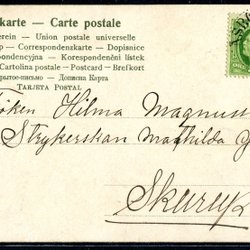 karte – Carte postale
erein – Union postale universelle
p – Correspondenzkarte – Dopisnice
ondencyjna – Korespondenční lístek
Cartolina postale – Postcard – Brefkort
рытое-письмо – Дописна Карта
TARJETA POSTAL
Fröken Hilma Magnus
Strykerskan Mathilda
Skurup